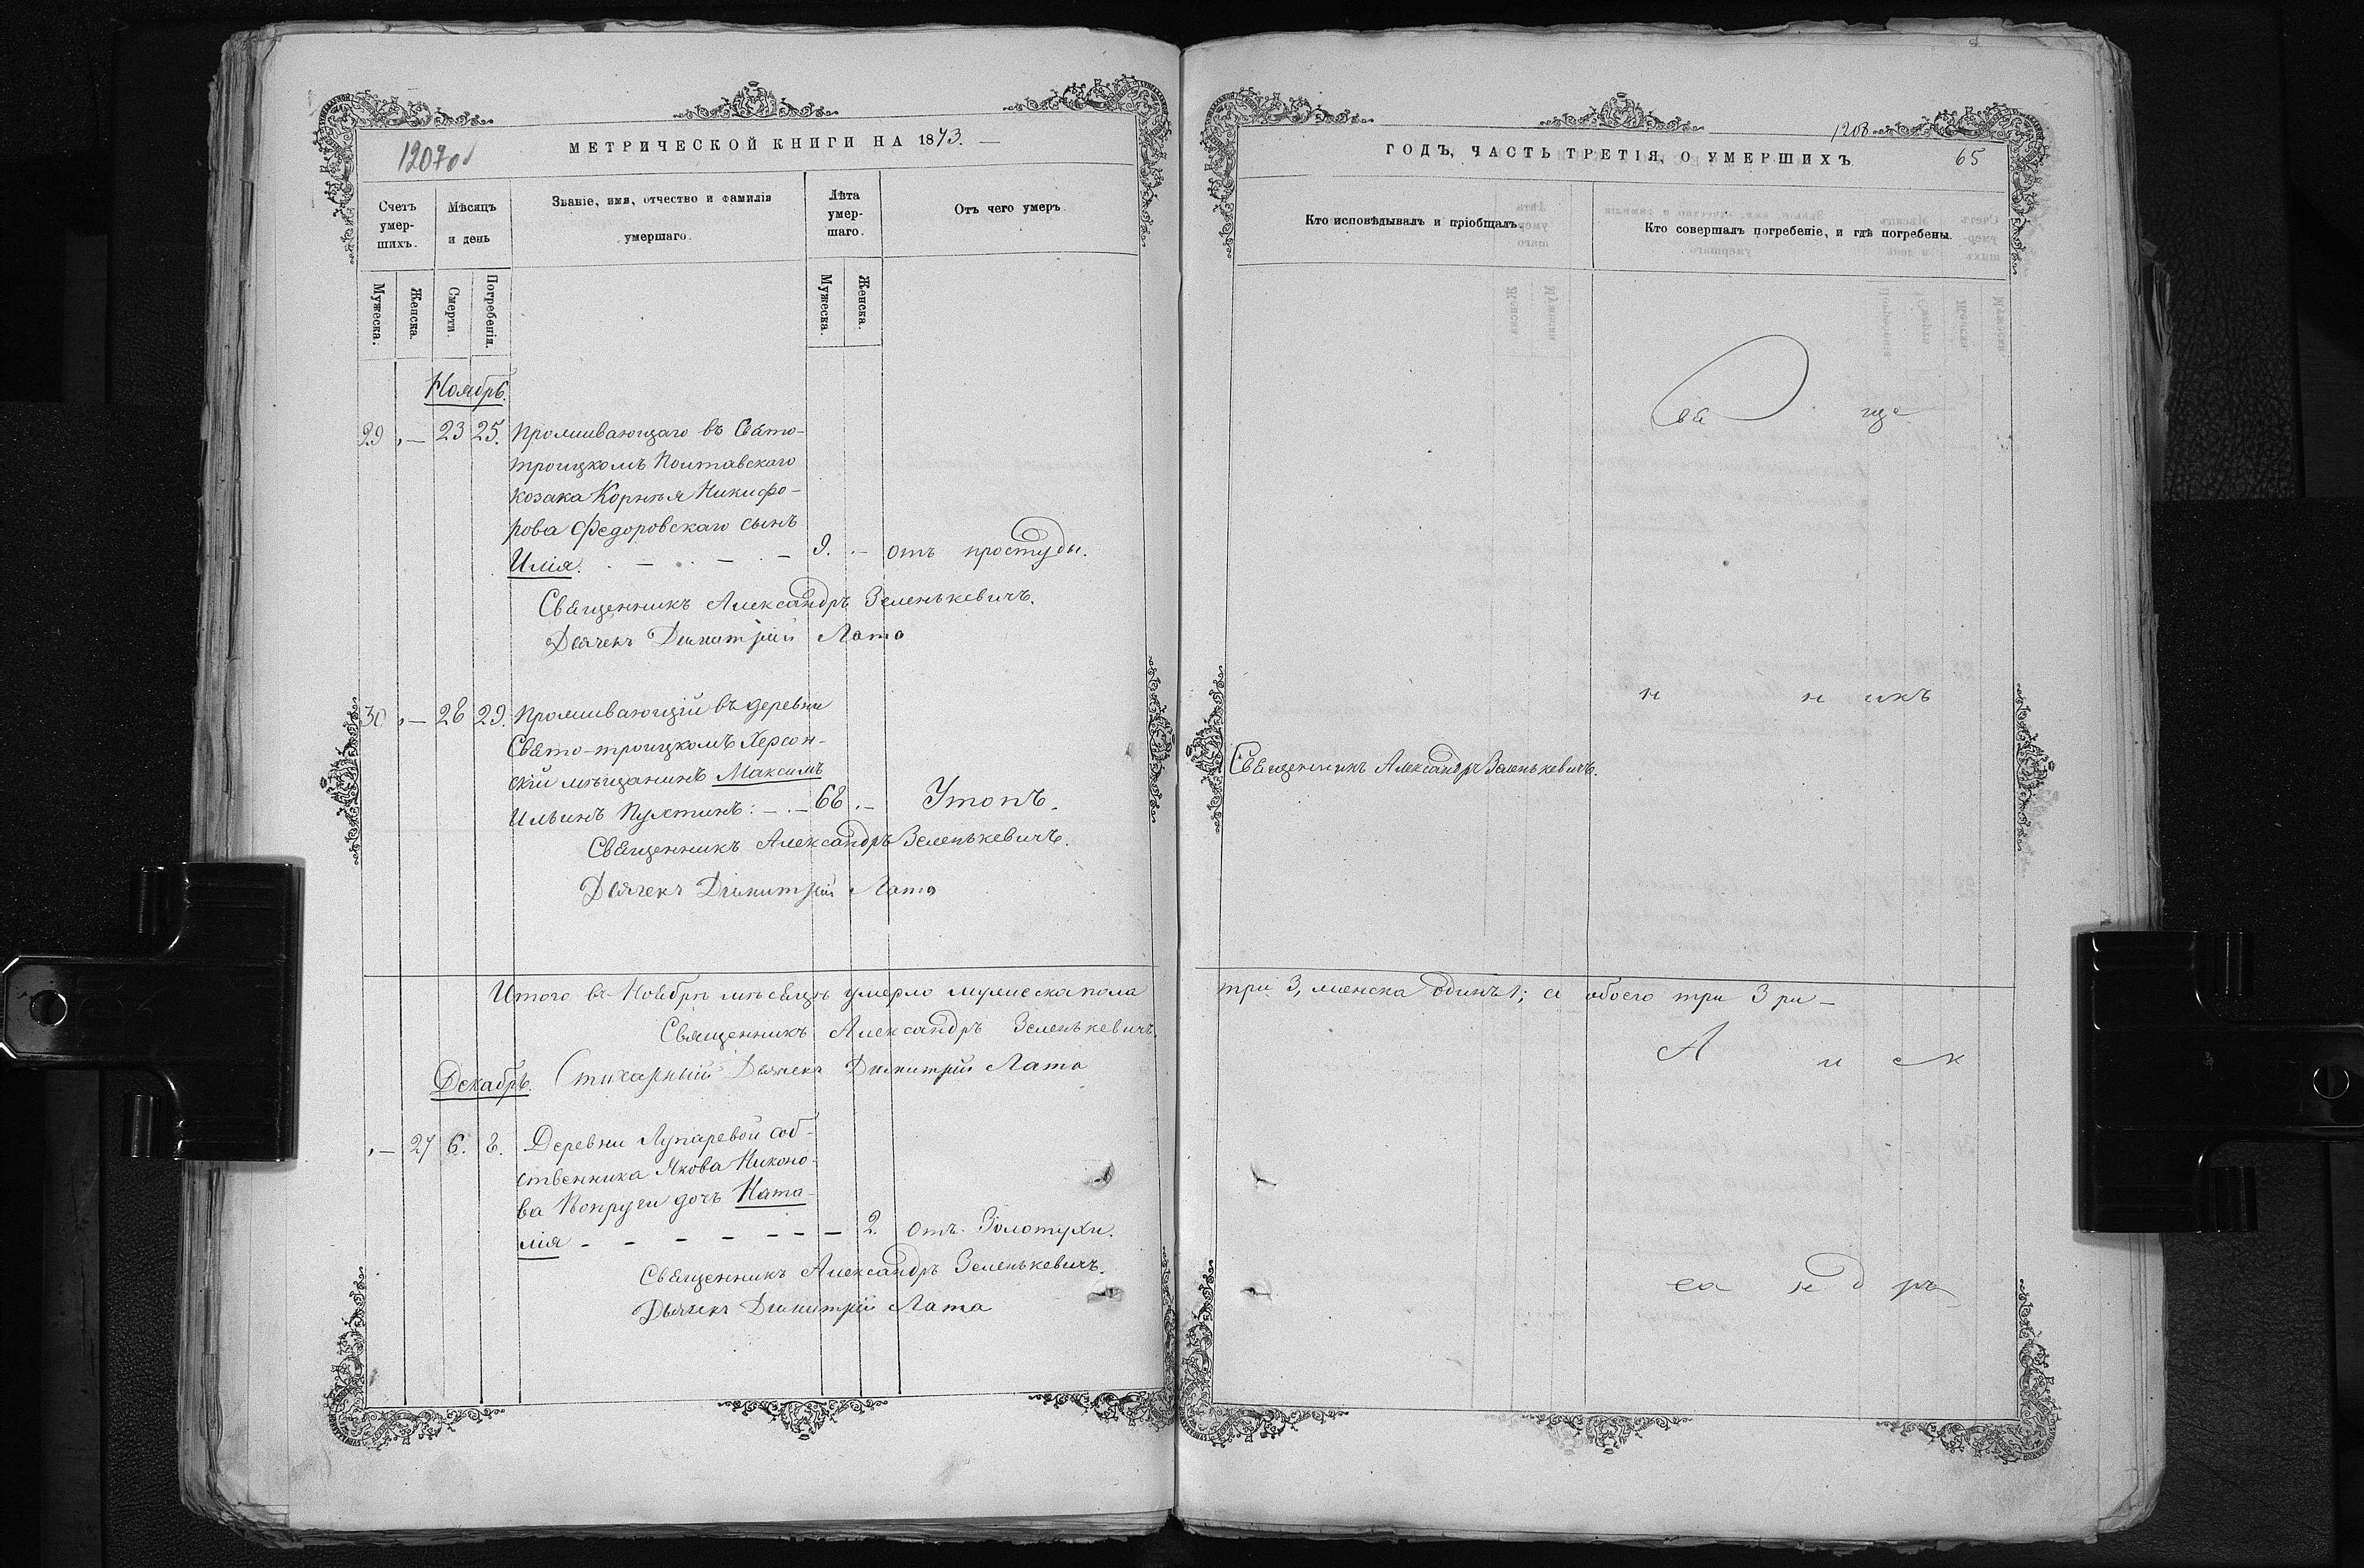 1207об
МЕТРИЧЕСКОЙ КНИГИ НА 1873. —
Счетъ умер-шихъ.
Мѣсяцъ и день
Званіе, имя, отчество и фамилія умершаго.
Лѣта умер-шаго.
Отъ чего умеръ
Мужеска.
Женска.
Смерти.
Погребенія.
Мужеска.
Женска.
Ноябрь.
29 „— 23 25. Проживающаго въ Свято-
троицкомъ Полтавскаго
козака Корнѣя Никифо-
рова Федоровскаго сынъ
Илія. 9. — отъ простуды.
Священникъ Александръ Зеленькевичъ.
Дьячекъ Димитрій Лата
30 „— 28 29. Проживающій въ деревни
Свято-троицкомъ Херсон-
скій мѣщанинъ Максимъ
Ильинъ Пухтинъ: — 68 .— Утопъ.
Священникъ Александръ Зеленькевичъ.
Дьячекъ Димитрій Лата
Итого въ Ноябрѣ мѣсяцѣ умерло мужеска пола
Священникъ Александръ Зеленькевичъ.
Декабрь. Стихарный Дьячекъ Димитрій Лата
„— 27 6. 8. Деревни Лупаревой соб-
ственника Якова Никоно-
ва Попруги дочь Ната-
лія — — — — — — — 2. отъ Золотухи.
Священникъ Александръ Зеленькевичъ.
Дьячекъ Димитрій Лата
1208
ГОДЪ, ЧАСТЬ ТРЕТІЯ, О УМЕРШИХЪ
65
Кто исповѣдывалъ и пріобщалъ.
Кто совершалъ погребеніе, и гдѣ погребены.
вя ще
н н икъ
Священникъ Александръ Зеленькевичъ.
три 3, женска одинъ 1; а обоего три 3 ри —
А л ек
са н д ръ